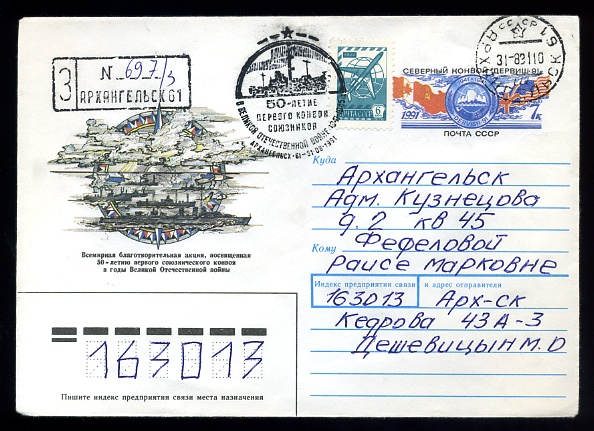 З
N 697/3
АРХАНГЕЛЬСК 61
50-ЛЕТИЕ
ПЕРВОГО КОНВОЯ
СОЮЗНИКОВ
В ВЕЛИКОЙ ОТЕЧЕСТВЕННОЙ ВОЙНЕ
АРХАНГЕЛЬСК-61-31.08.1991
6
СЕВЕРНЫЙ КОНВОЙ "ДЕРВИШ-91"
1991
7к
ПОЧТА СССР
СССР
31-8
Всемирная благотворительная акция, посвященная
50-летию первого союзнического конвоя
в годы Великой Отечественной войны
Куда
Архангельск
Адм. Кузнецова
д. 2 кв 45
Кому
Фефеловой
Раисе Марковне
Индекс предприятия связи
и адрес отправителя
163013
Арх-ск
Кедрова 43А-3
Дешевицын М.О
163013
Пишите индекс предприятия связи места назначения